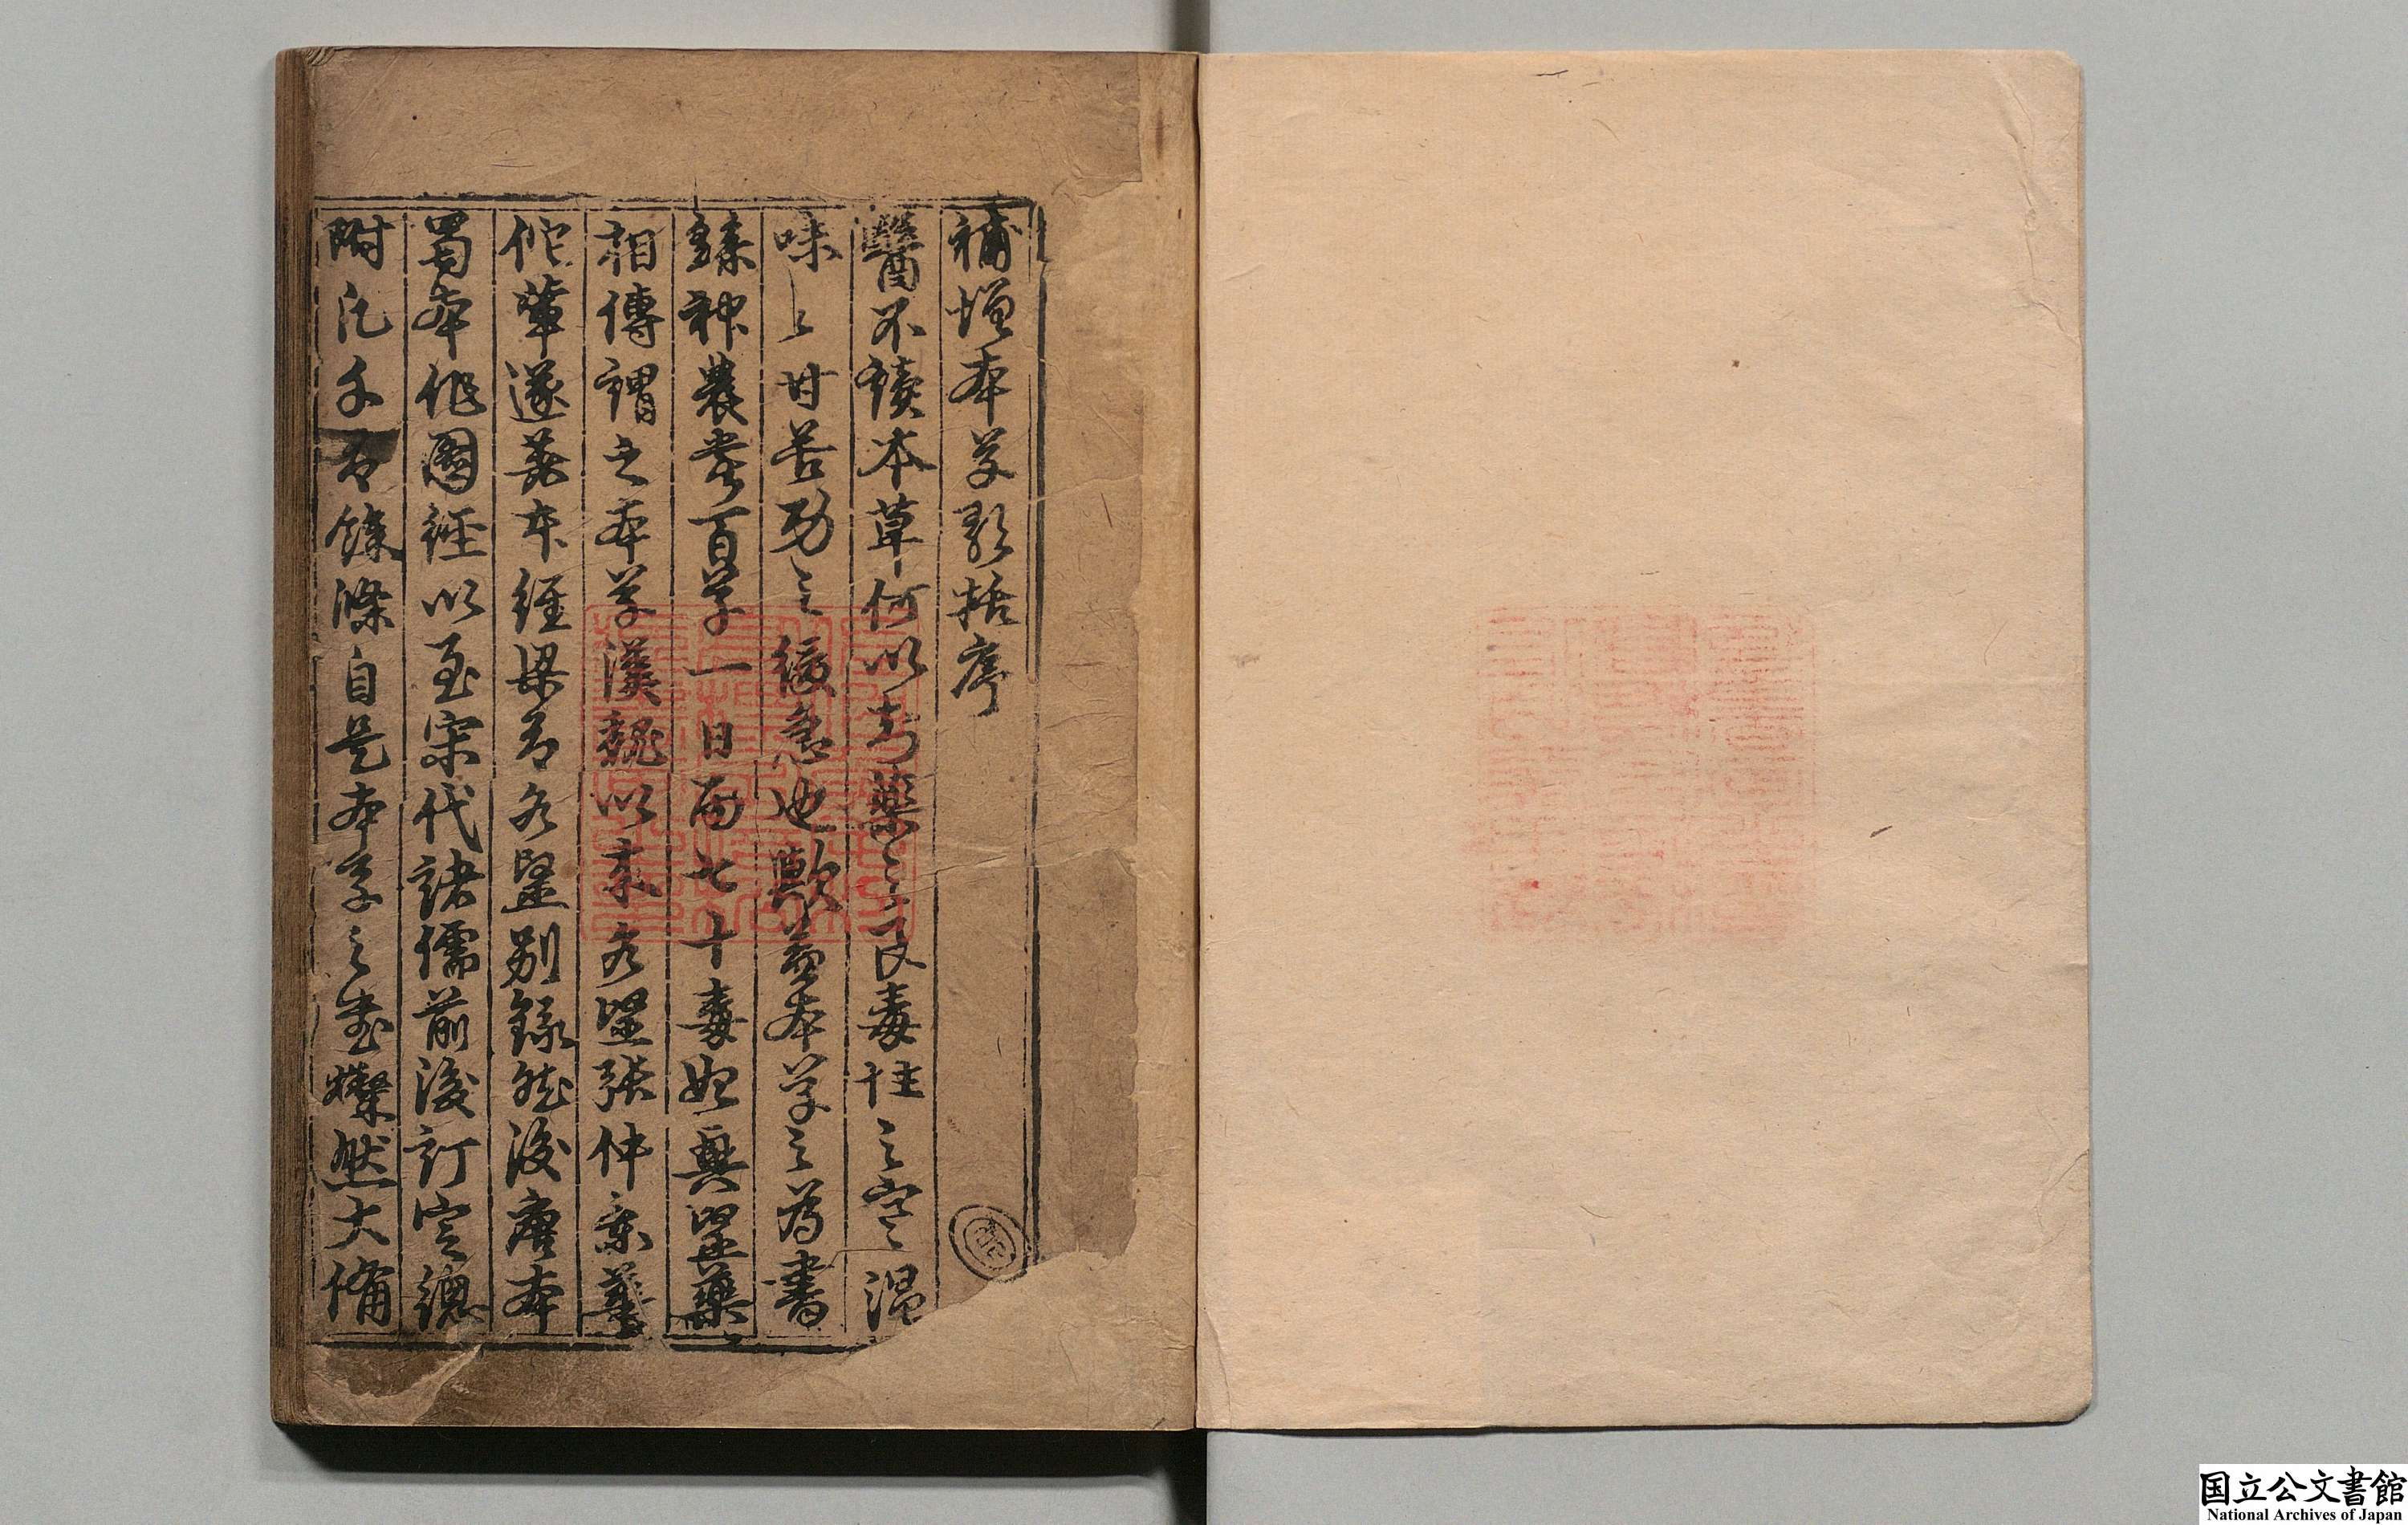 補增本草歌括序
醫不讀本草何以知藥之良毒性之寒溫
味之甘苦功之緩急也歟蓋本草之為書
神農嘗百草一日而七十毒始興毉藥
相傳謂之本草漢魏以來名毉張仲景華
佗輩遂菾本經梁有名毉別錄然後唐本
蜀本作圖經以至宋代諸儒前後訂定總
附凡千百餘條自是本草之書燦然大備
国立公文書館
National Archives of Japan